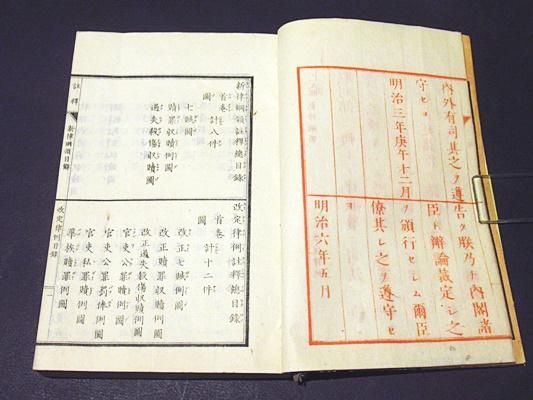 内外有司其之ヲ遵
守セヨ
明治三年庚午十二月
告ク朕乃チ内閣諸
臣ト辯論裁定シ之
ヲ頒行セシム爾臣
僚其レ之ヲ遵守セ
ヨ
明治六年五月
新律綱領註釋總目録
首巻 計八件
圖
七贓圖
贖罪收贖例圖
過失殺傷收贖圖
改定律例註釋總目録
首巻 計十二件
圖
改正七贓例圖
改正贖罪收贖例圖
改正過失殺傷收贖例圖
官吏公罪罰俸例圖
官吏私罪贖例圖
華族贖罪例圖
註釋
新律綱領目録
改定律例目録
一